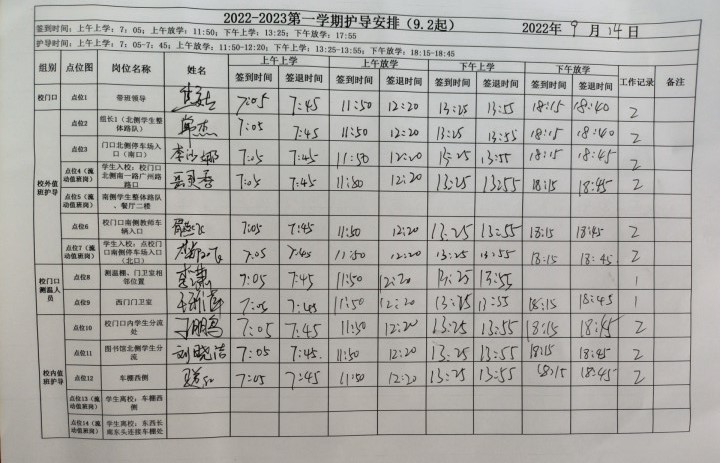 2022-2023第一学期护导安排（9.2起） 2022年 9 月 14 日
签到时间：上午上学：7：05；上午放学：11:50；下午上学：13:25；下午放学：17:55
护导时间：上午上学：7：05-7：45；上午放学：11:50-12:20；下午上学：13:25-13:55；下午放学：18:15-18:45
组别 点位图 岗位名称 姓名 上午上学 上午放学 下午上学 下午放学 工作记录 备注
签到时间 签退时间 签到时间 签退时间 签到时间 签退时间 签到时间 签退时间
校门口 点位1 带班领导 7:05 7:45 11:50 12:20 13:25 13:55 18:15 18:40 2
校外值班护导 点位2 组长1（北侧学生整体路队） 7:05 7:45 11:50 12:20 13:25 13:55 18:15 18:40 2
点位3 门口北侧停车场入口（南口） 7:05 7:45 11:50 12:20 13:25 13:55 18:15 18:45 2
点位4（流动值班岗） 学生入校：校门口北侧南一路广州路路口 7:05 7:45 11:50 12:20 13:25 13:55 18:15 18:45 2
点位5（流动值班岗） 南侧学生整体路队、餐厅二楼
点位6 校门口南侧教师车辆入口 7:05 7:45 11:50 12:20 13:25 13:55 18:15 18:45 2
点位7（流动值班岗） 学生入校：点校门口南侧停车场入口（北口） 7:05 7:45 11:50 12:20 13:25 13:55 18:15 18:45 2
校门口测温人员 点位8 测温棚、门卫室相邻位置 7:05 7:45 11:50 12:20 13:25 13:55 1
点位9 西门门卫室 7:05 7:45 11:50 12:20 13:25 13:55 18:15 18:45 1
校内值班护导 点位10 校门口内学生分流处 于鹏鸟 7:05 7:45 11:50 12:20 13:25 13:55 18:15 18:45 2
点位11 图书馆北侧学生分流 刘晓洁 7:05 7:45 11:50 12:20 13:25 13:55 18:15 18:45 2
点位12 车棚西侧 7:05 7:45 11:50 12:20 13:25 13:55 18:15 18:45 2
点位13（流动值班岗） 学生离校：车棚西侧
点位14（流动值班岗） 学生离校：东西长廊东头连接车棚处